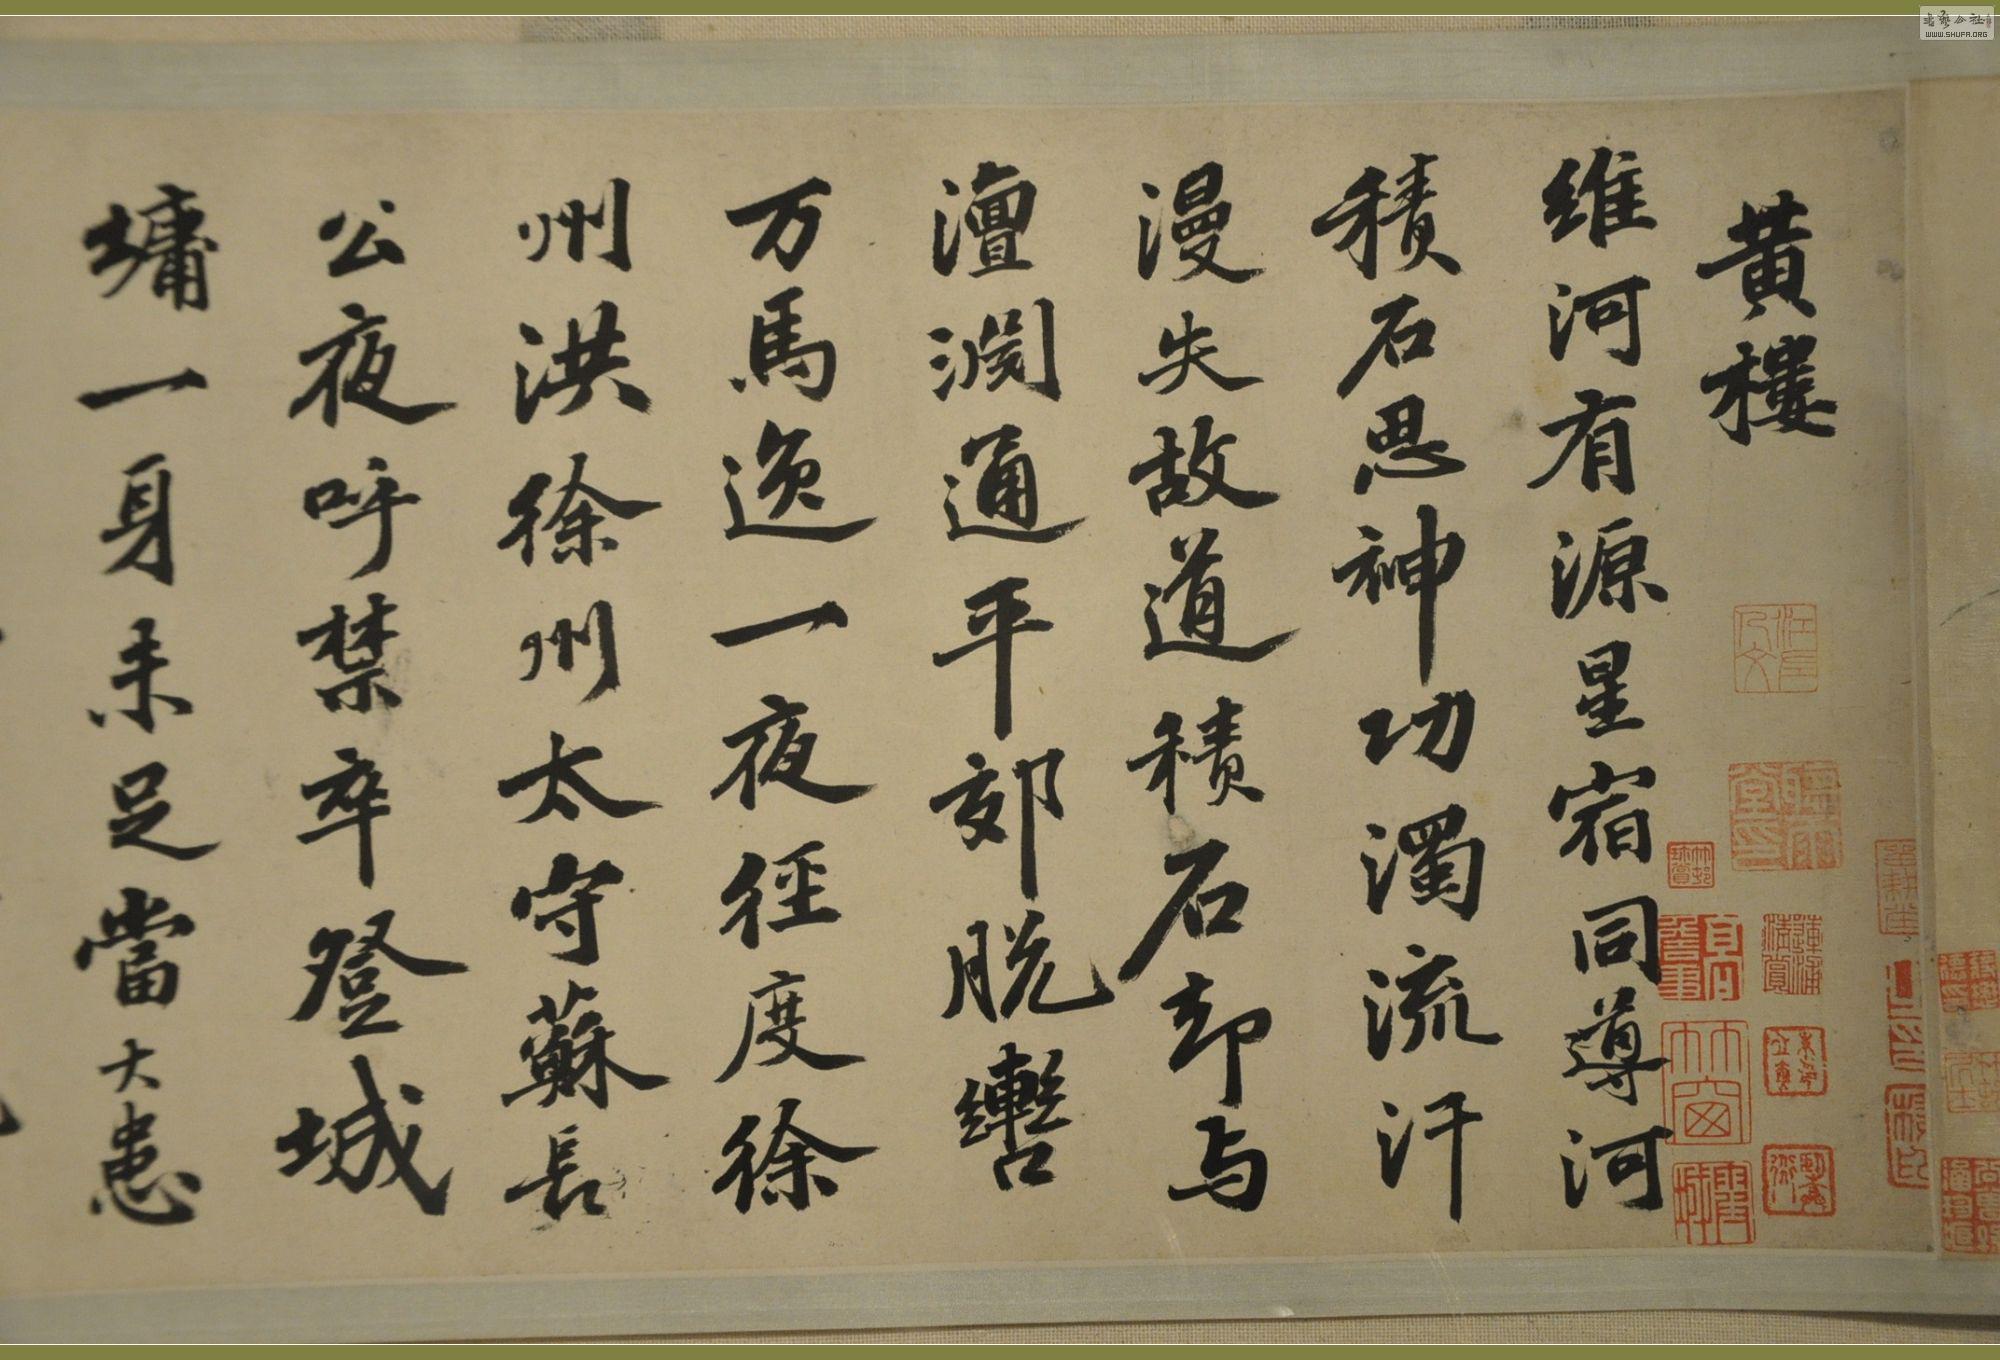 黄樓
維河有源星宿同導河
積石思神功濁流汗
漫失故道積石却与
澶淵通平郊脱轡
万馬逸一夜徑度徐
州洪徐州太守蘇長
公夜呼禁卒登城
墉一身未足當大患
WWW.SHUFA.ORG